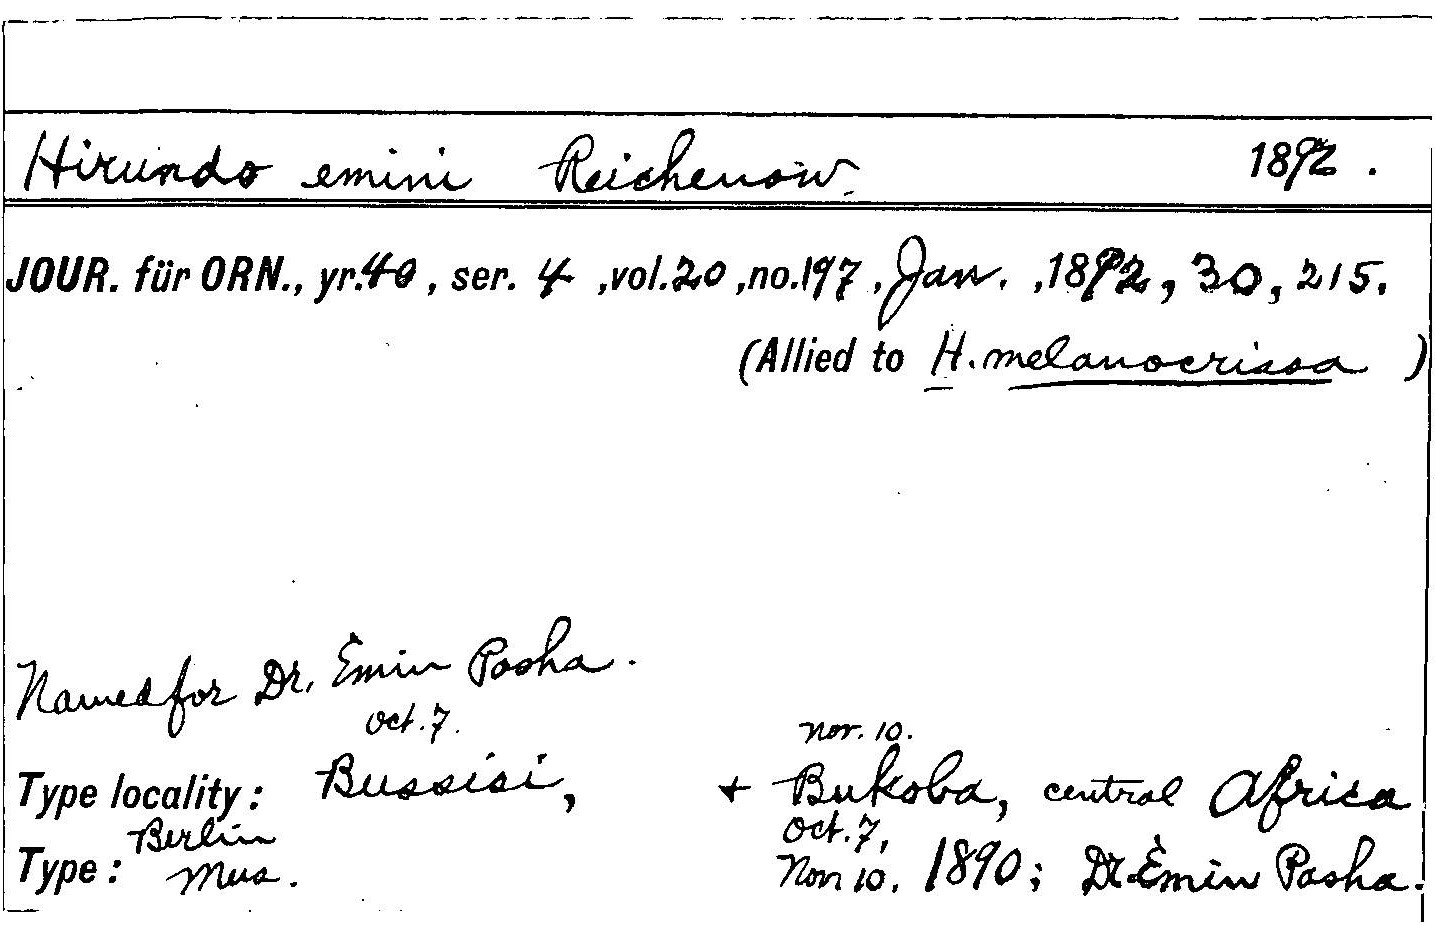 Hirundo emini Reichenow. 1892.
JOUR. für ORN., yr.40, ser. 4, vol.20, no.197, Jan., 1892, 30, 215.
(Allied to H. melanocrissa)
Named for Dr. Emin Pasha.
Oct. 7. Nov. 10.
Type locality: Bussisi, + Bukoba, central Africa
Berlin Oct. 7,
Type: Mus. Nov 10, 1890; Dr. Emin Pasha.